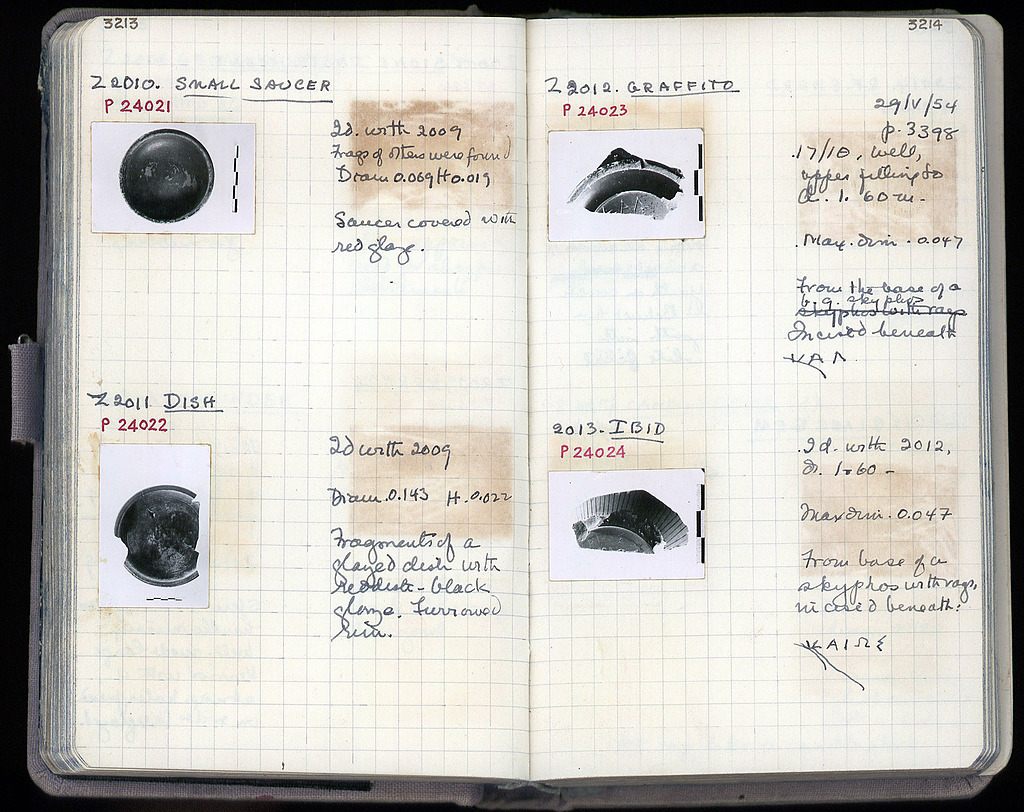 3213
Z 2010. SMALL SAUCER
P 24021
Id. with 2009
Frags of others were found
Diam 0.069 H 0.019
Saucer covered with
red glaze.
Z 2011. DISH
P 24022
Id with 2009
Diam. 0.143 H. 0.022
Fragments of a
glazed dish with
reddish-black
glaze. Furrowed
rim.
3214
Z 2012. GRAFFITO
P 24023
29/V/54
p. 3398
17/ΙΘ, well,
upper filling to
1.60 m.
Max. dim. 0.047
From the base of a
b.g. skyphos
skyphos with rays
Incised beneath
ΚΑΛ
2013. IBID
P 24024
Id. with 2012,
1.60 -
Max dim. 0.047
From base of a
skyphos with rays,
incised beneath: